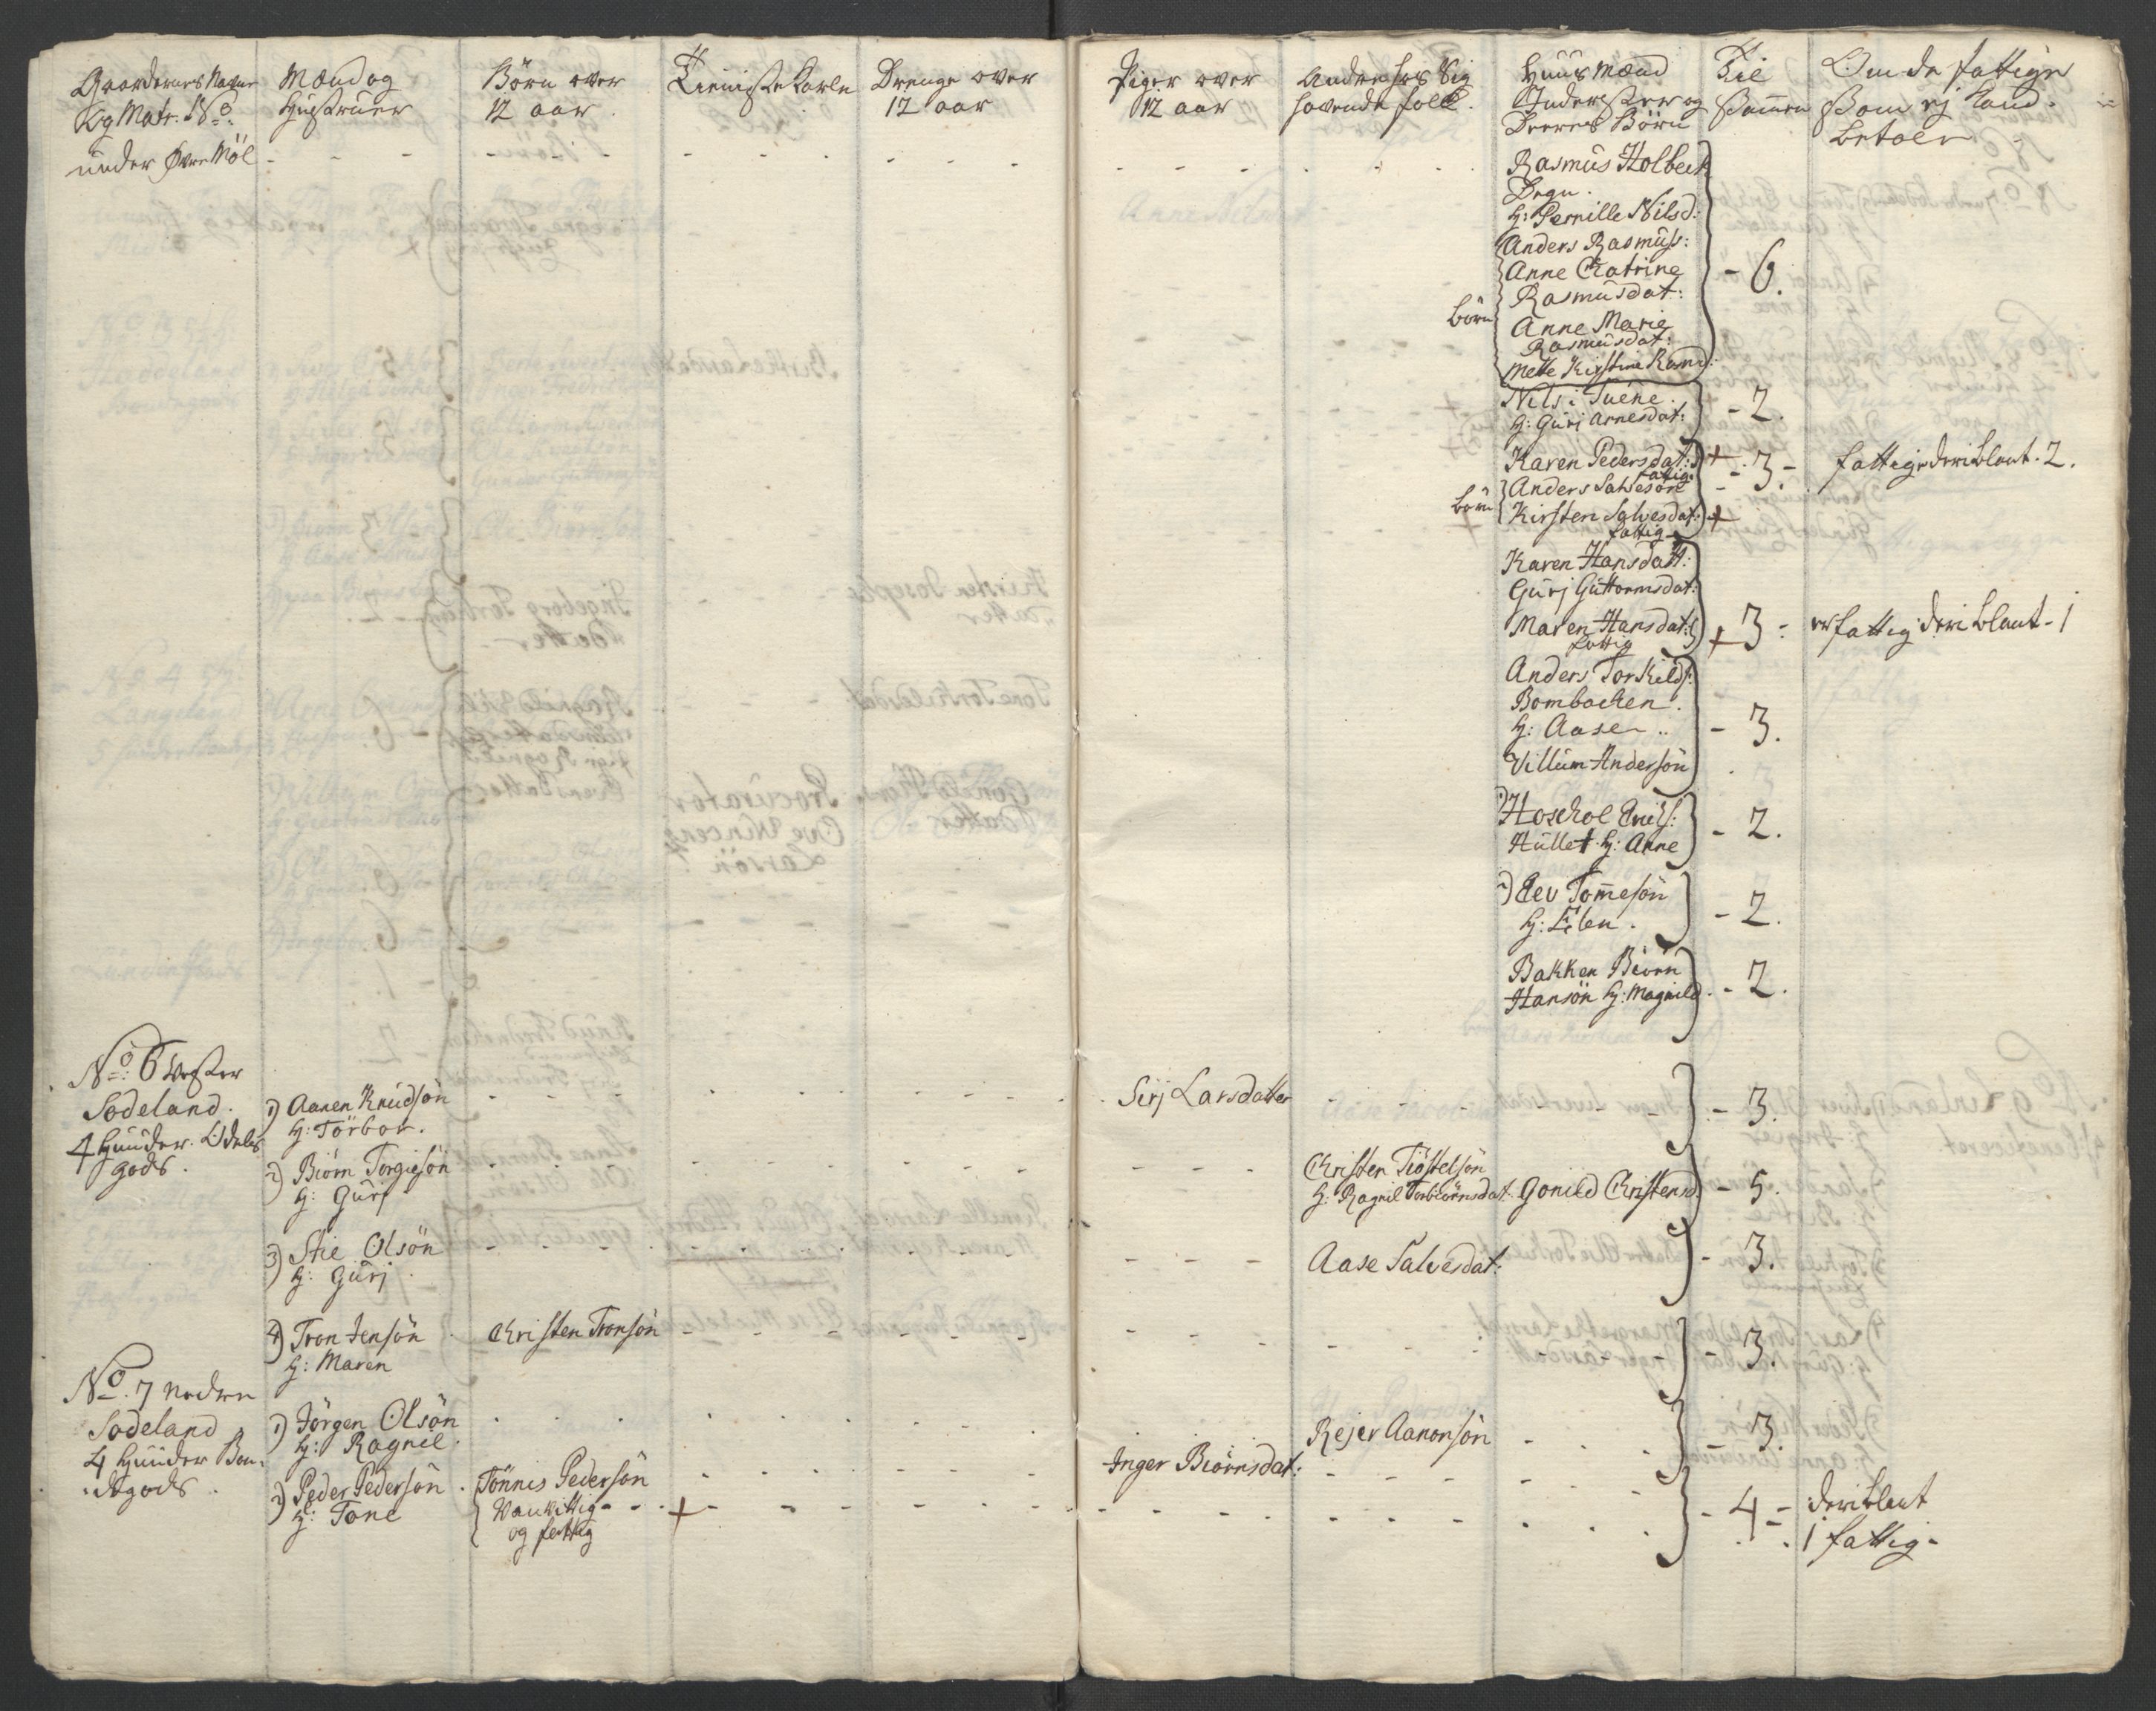 Gaardernes Nafne
Og Matr: No:
under Øvre Møl
Mænd og
Hustruer
Børn over
12 aar
Tieniste Karle
Drenge over
12 aar
Piger over
12 aar
Andre hos Sig
havende folk.
Huus Mænd
Inderster og
Deeres Børn
Til
Sammen
Om de fattige
Som ej kand
betale
Rasmus Holbech
Degn.
H: Pernille Nilsd:
Anders Rasmuss:
Anne Catrine
Rasmusdat:
børn
Anne Marie
Rasmusdat:
Mette Kirstine Rasmd:
- 6.
Nils i Tuene.
H: Gurj Arnesdat:
- 2.
Karen Pedersdat:
fattig
børn
Anders Salvesøn
Kirsten Salvesdat:
fattig
- 3 -
fattige deriblant. 2.
Karen Hansdatt:
Gurj Guttormsdat:
Maren Hansdat:
fattig
+ 3 -
er fattig deriblant - 1
Anders Torkilds:
Bombachen.
H: Aase ..
Villum Andersøn
- 3.
1) Hoschol Erichs:
Hullet. H: Anne
- 2.
2) Elev Tommesøn
H: Elen.
- 2.
Bakken Biørn
Hansøn H: Magnild.
- 2.
No: 6 Wester
Sodeland.
4 Huuder. Odels
gods.
1) Aanen Knudsøn
H: Torbor.
Sirj Larsdatter
- 3.
2) Biørn Torgiesøn
H: Gurj
Christen Tiøstelsøn
H: Ragnil Torbiørnsdat.
Gonild Christensd.
- 5.
3) Stie Olsøn
H: Gurj
Aase Salvesdat:
- 3.
4) Tron Jensøn
H: Maren
Christen Tronsøn
- 3.
No. 7 Nedre
Sodeland
4 Huuder Bon-
degods.
1) Jørgen Olsøn
H: Ragnil.
Rejer Aanonsøn
- 3.
2) Peder Pedersøn
H: Tone
Tønnis Pedersøn
Vanvittig
og fattig
+
Inger Biørnsdat:
- 4 -
deriblant
1 fattig -